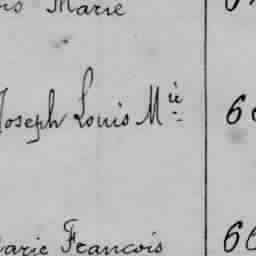 Marie
Joseph Louis M^ie 6
Marie François 6